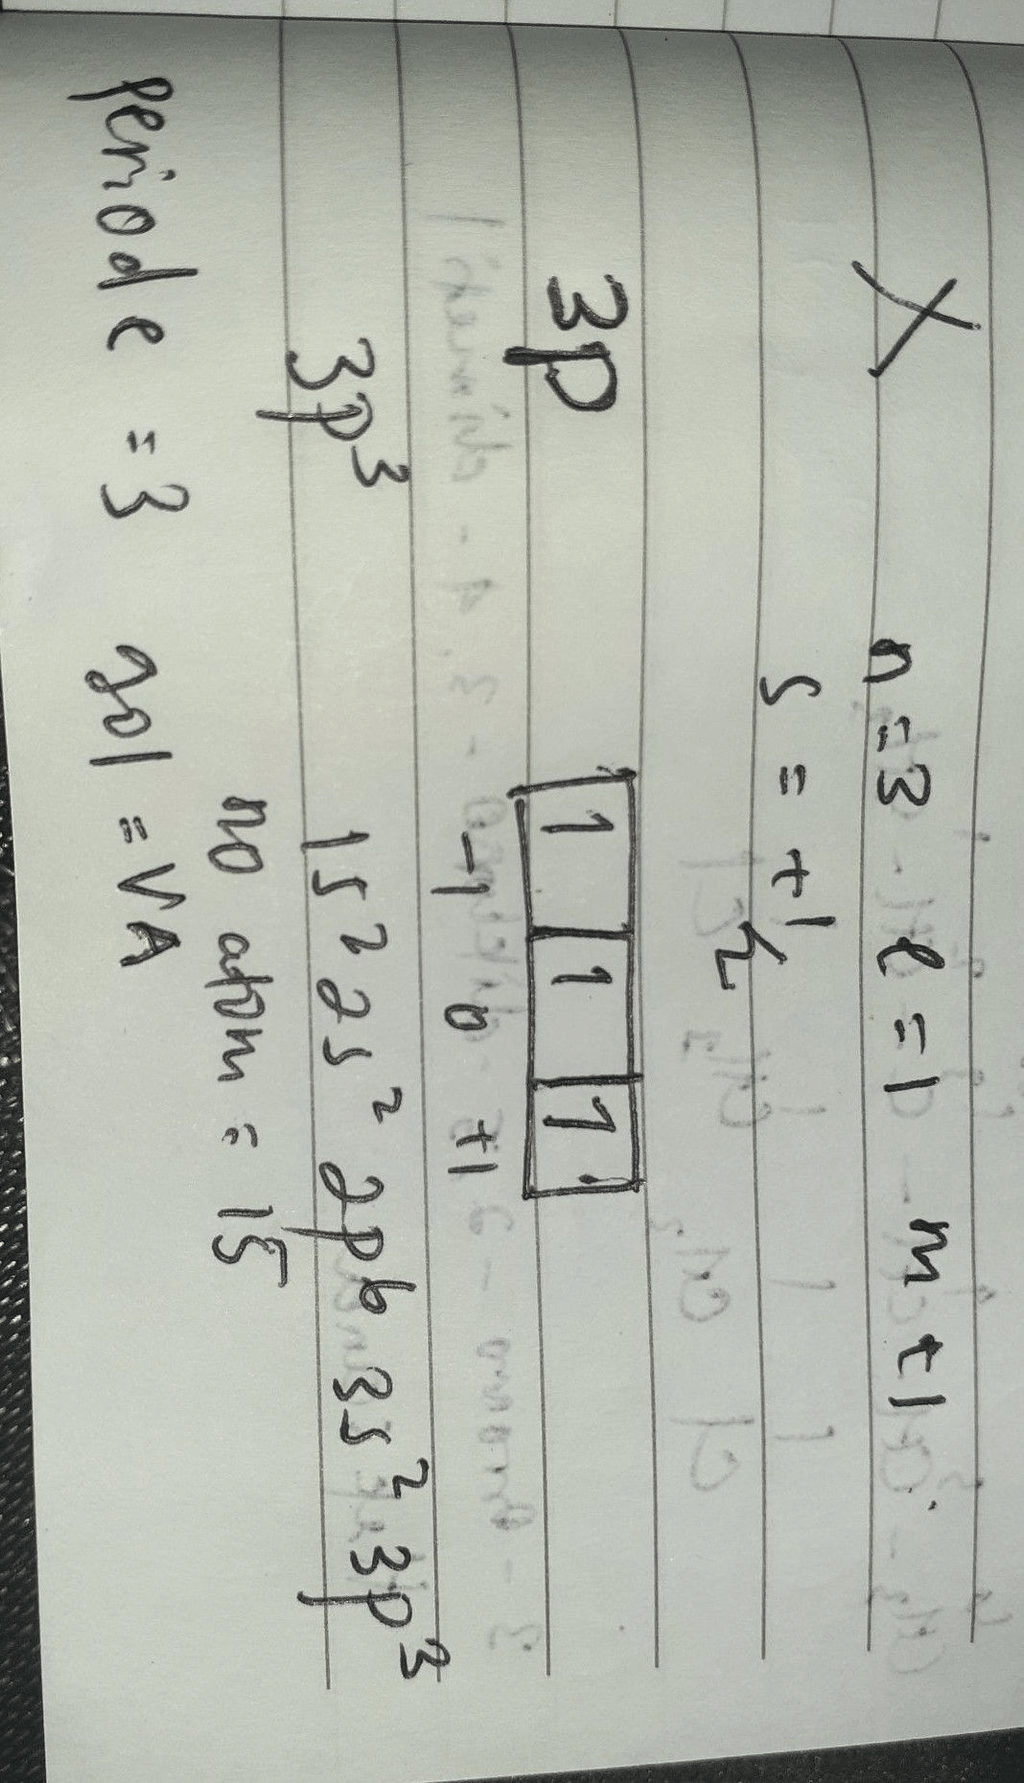 X n = 3 l = 1 m + 1
s = + 1/2
3p 1 1 1
-1 0 +1
3p³ 1s² 2s² 2p6 3s² 3p³
no atom = 15
periode = 3 gol = VA